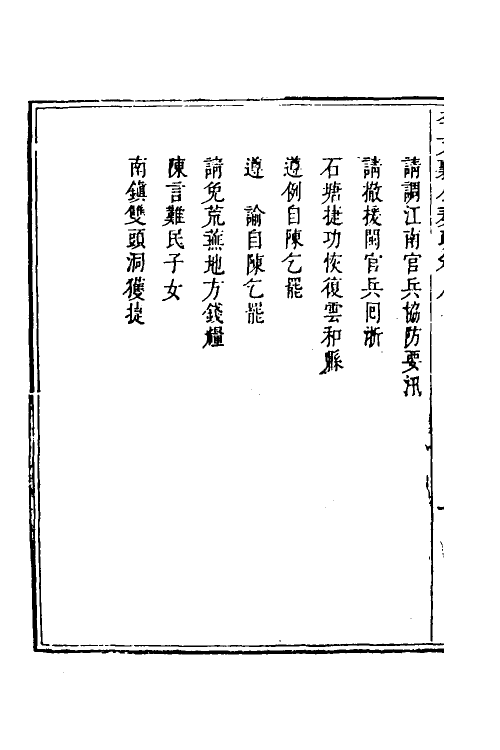 請調江南官兵協防要汛
請撤援閩官兵囘浙
石塘捷功恢復雲和縣
遵例自陳乞罷
遵　諭自陳乞罷
請免荒蕪地方錢糧
陳言難民子女
南鎮雙頭洞獲捷